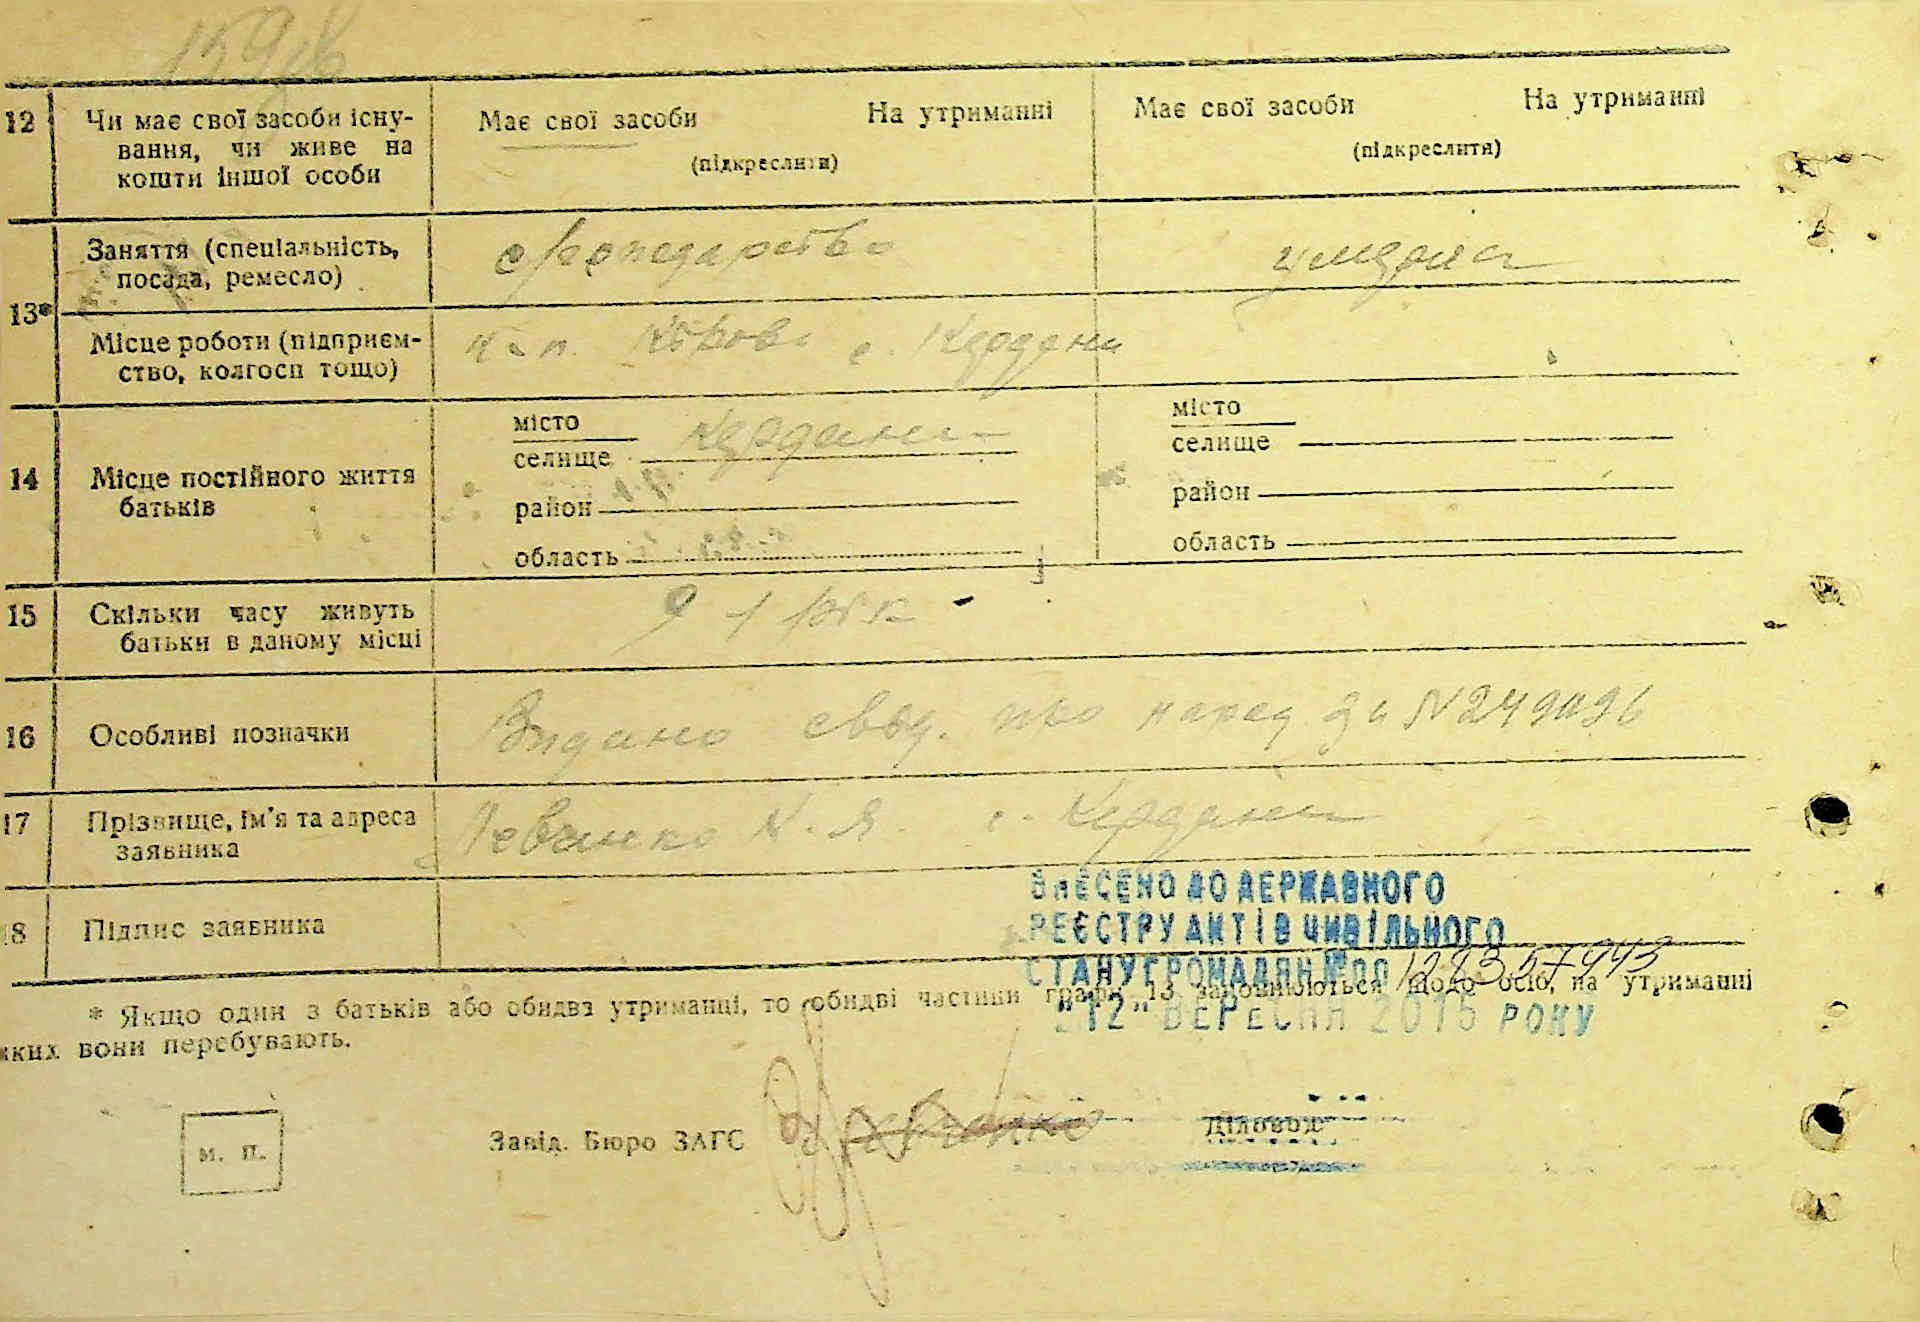 12 Чи має свої засоби існу-
вання, чи живе на
кошти іншої особи
Має свої засоби На утриманні
(підкреслити)
Має свої засоби На утриманні
(підкреслити)
13* Заняття (спеціальність,
посада, ремесло)
Місце роботи (підприєм-
ство, колгосп тощо)
с. Кердани
14 Місце постійного життя
батьків
місто
селище Кердани
район
область
місто
селище
район
область
15 Скільки часу живуть
батьки в даному місці
1 рік
16 Особливі позначки
Видано свід. про народ за №
17 Прізвище, ім'я та адреса
заявника
К. Я. с. Кердани
18 Підпис заявника
ВНЕСЕНО ДО ДЕРЖАВНОГО
РЕЄСТРУ АКТІВ ЦИВІЛЬНОГО
СТАНУ ГРОМАДЯН № 00
"12" ВЕРЕСНЯ 2015 РОКУ
* Якщо один з батьків або обидва утриманці, то обидві частини графи 13 заповнюються щодо осіб, на утриманні
яких вони перебувають.
м. п.
Завід. Бюро ЗАГС
Діловод